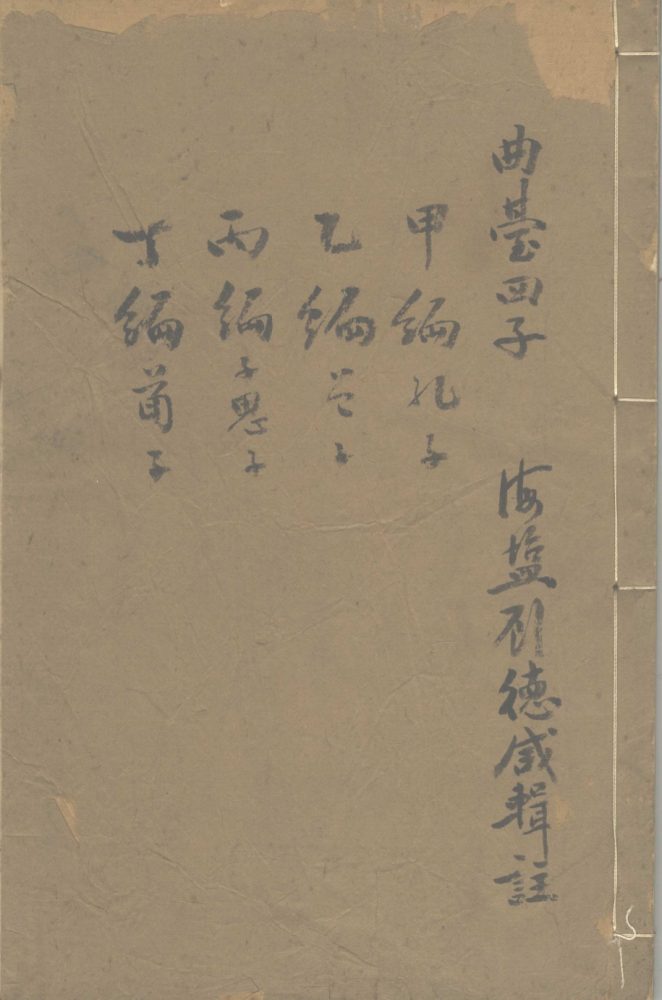 曲臺四子 海塩德咸輯註
甲編孔子
乙編曾子
丙編子思子
丁編荀子